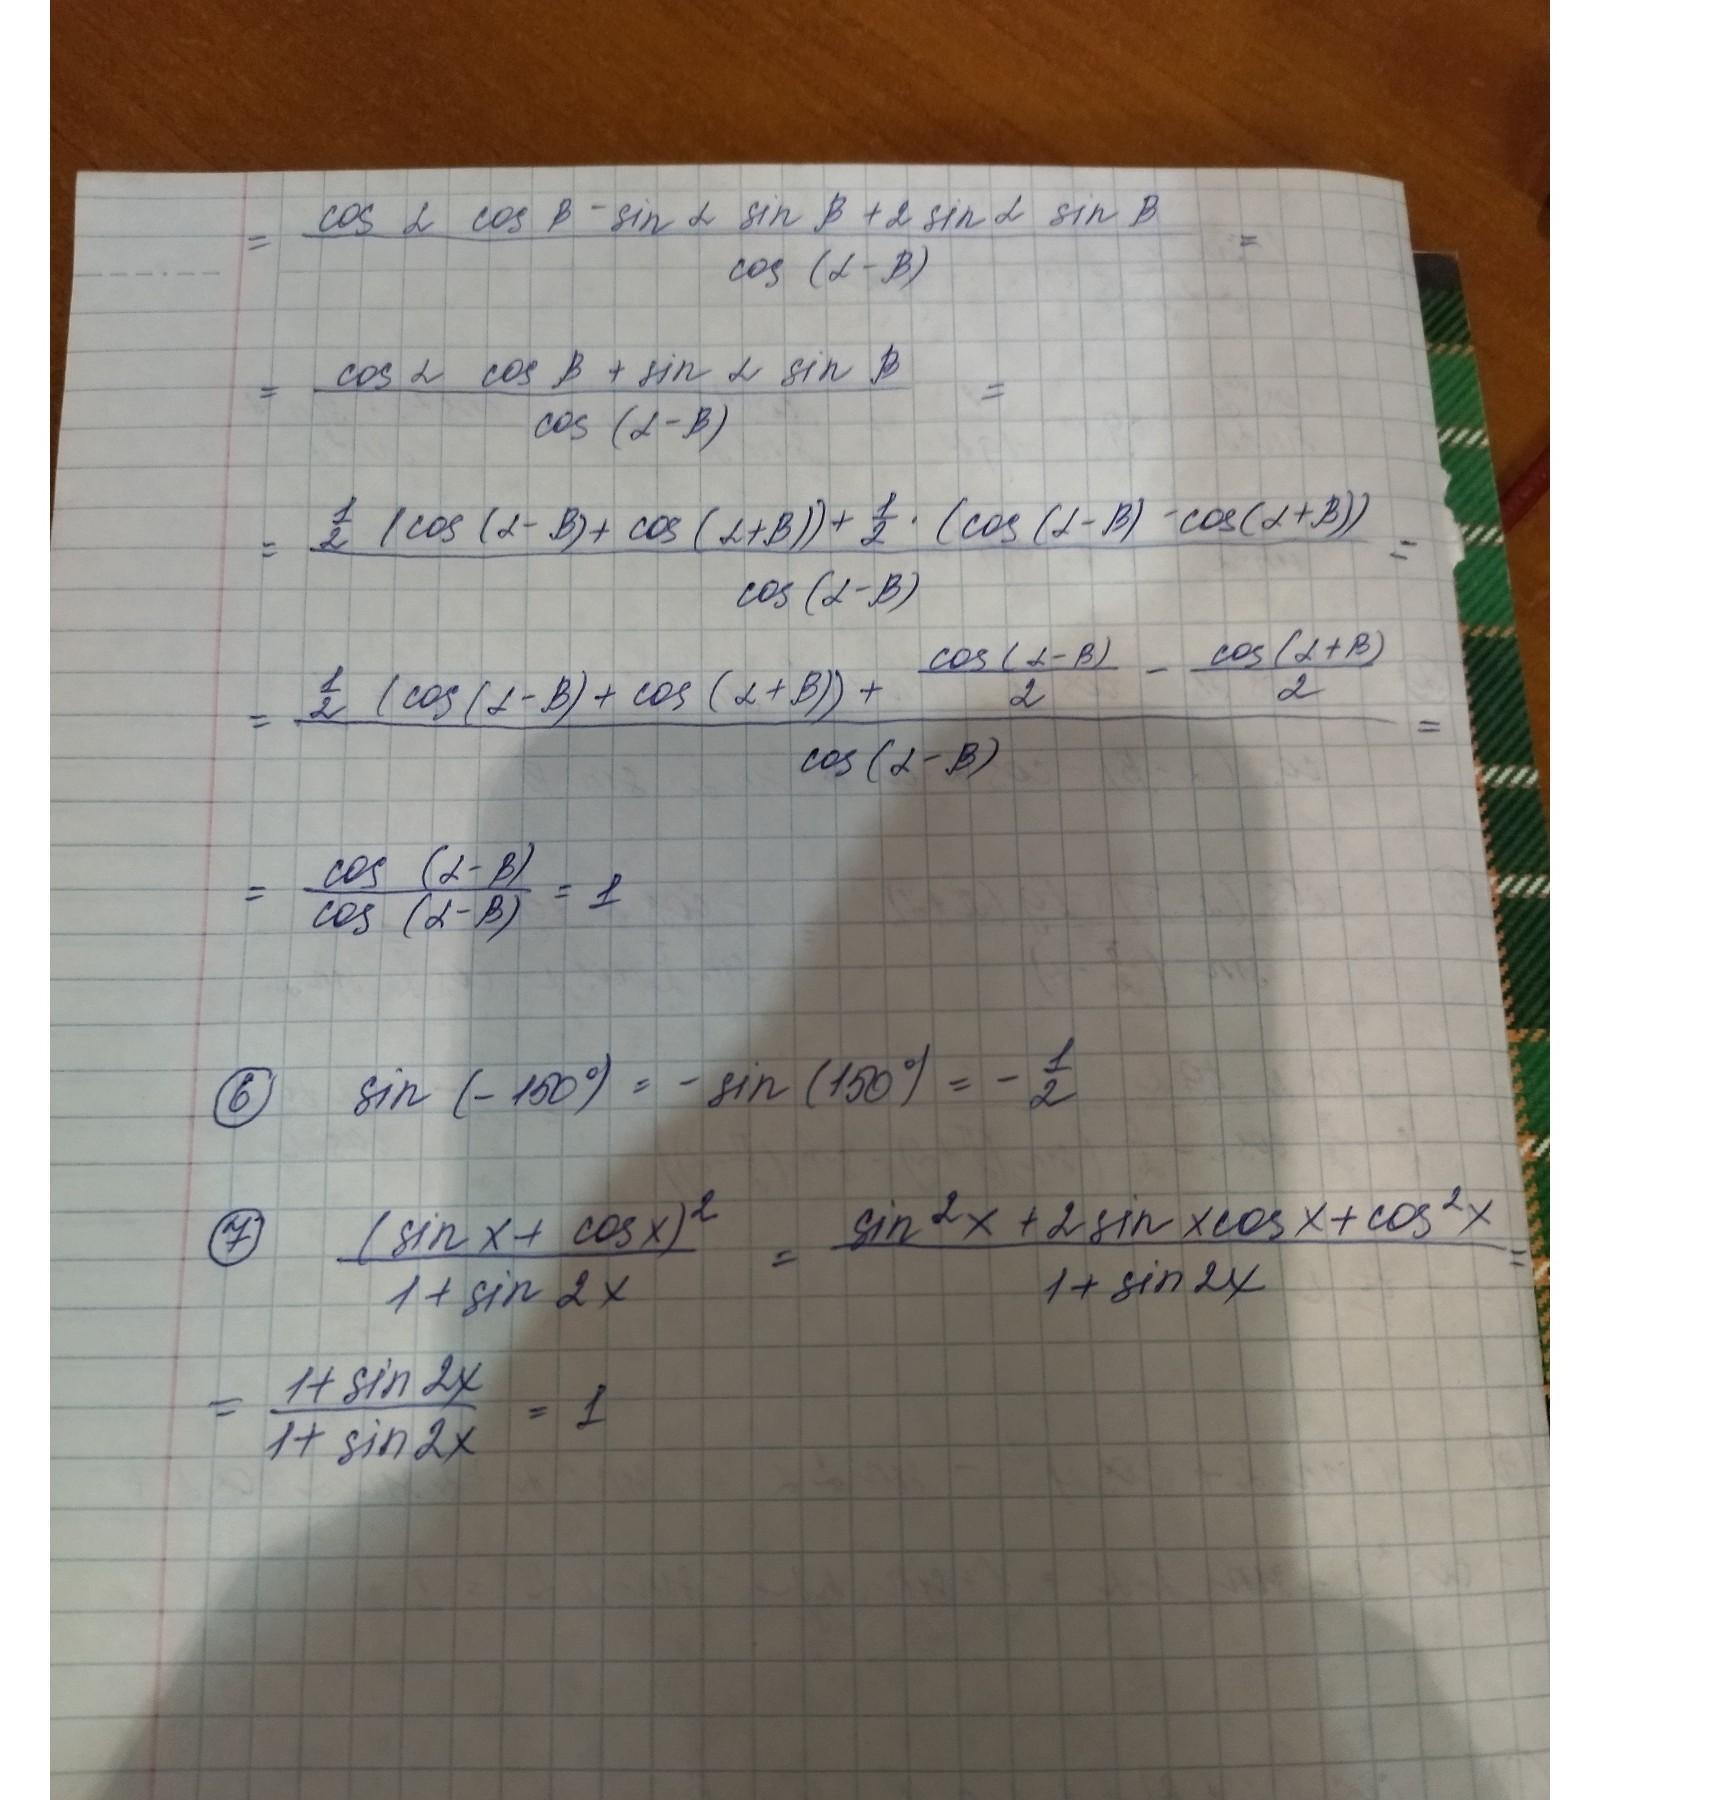 = (cos α cos β - sin α sin β + 2 sin α sin β) / cos (α - β) =
= (cos α cos β + sin α sin β) / cos (α - β) =
= (1/2 (cos (α - β) + cos (α + β)) + 1/2 · (cos (α - β) - cos (α + β))) / cos (α - β) =
= (1/2 (cos (α - β) + cos (α + β)) + cos (α - β)/2 - cos (α + β)/2) / cos (α - β) =
= cos (α - β) / cos (α - β) = 1
⑥ sin (- 150°) = - sin (150°) = - 1/2
⑦ (sin x + cos x)² / (1 + sin 2x) = (sin²x + 2 sin x cos x + cos²x) / (1 + sin 2x) =
= (1 + sin 2x) / (1 + sin 2x) = 1